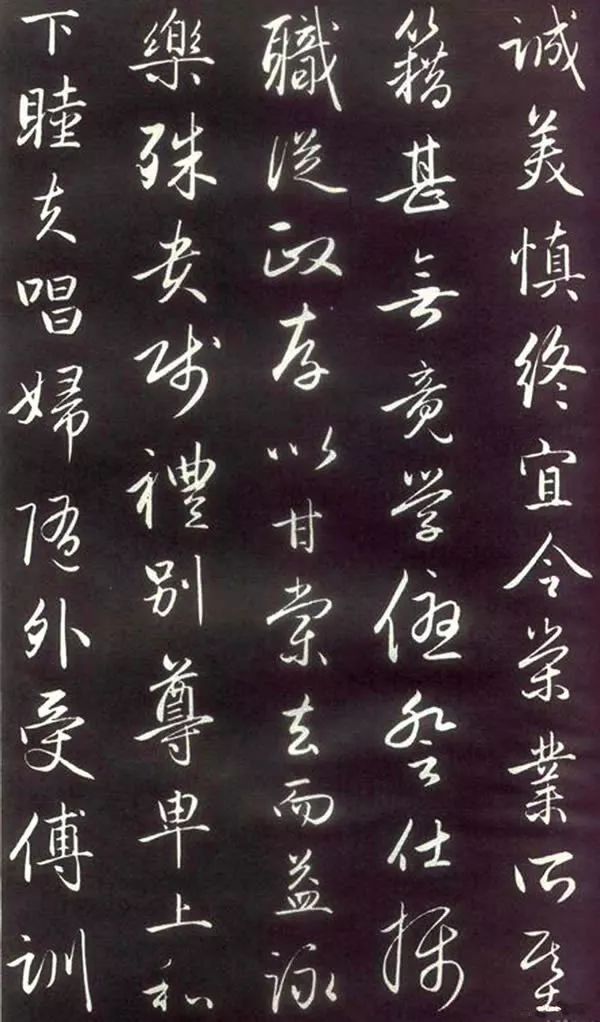 誠美慎終宜令榮業所基
籍甚無竟學優登仕攝
職從政存以甘棠去而益詠
樂殊貴賤禮別尊卑上和
下睦夫唱婦隨外受傅訓